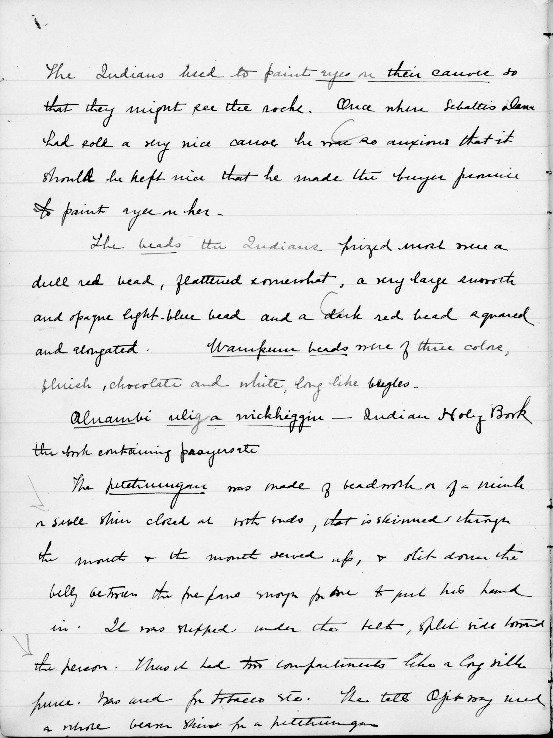 The Indians used to paint eyes on their canoes so
that they might see the rocks. Once when Sebattis
had sold a very nice canoe he was so anxious that it
should be kept nice that he made the buyer promise
to paint eyes on her.
The beads the Indians prized most were a
dull red bead, flattened somewhat, a very large smooth
and opaque light-blue bead and a dark red bead squared
and elongated. Wampum beads were of three colors,
bluish, chocolate and white, long like bugles.
Alnambi uliga wickhiggin — Indian Holy Book
the book containing prayers etc
The petehungan was made of beadwork or of a mink
or sable skin closed at both ends, that is skinned through
the mouth & the mouth sewed up, & slit down the
belly between the fore paws enough for one to put his hand
in. It was slipped under the belt, split side toward
the person. Thus it had two compartments like a long silk
purse. Was used for tobacco etc. The tall Ojibway used
a whole beaver skin for a petehungan